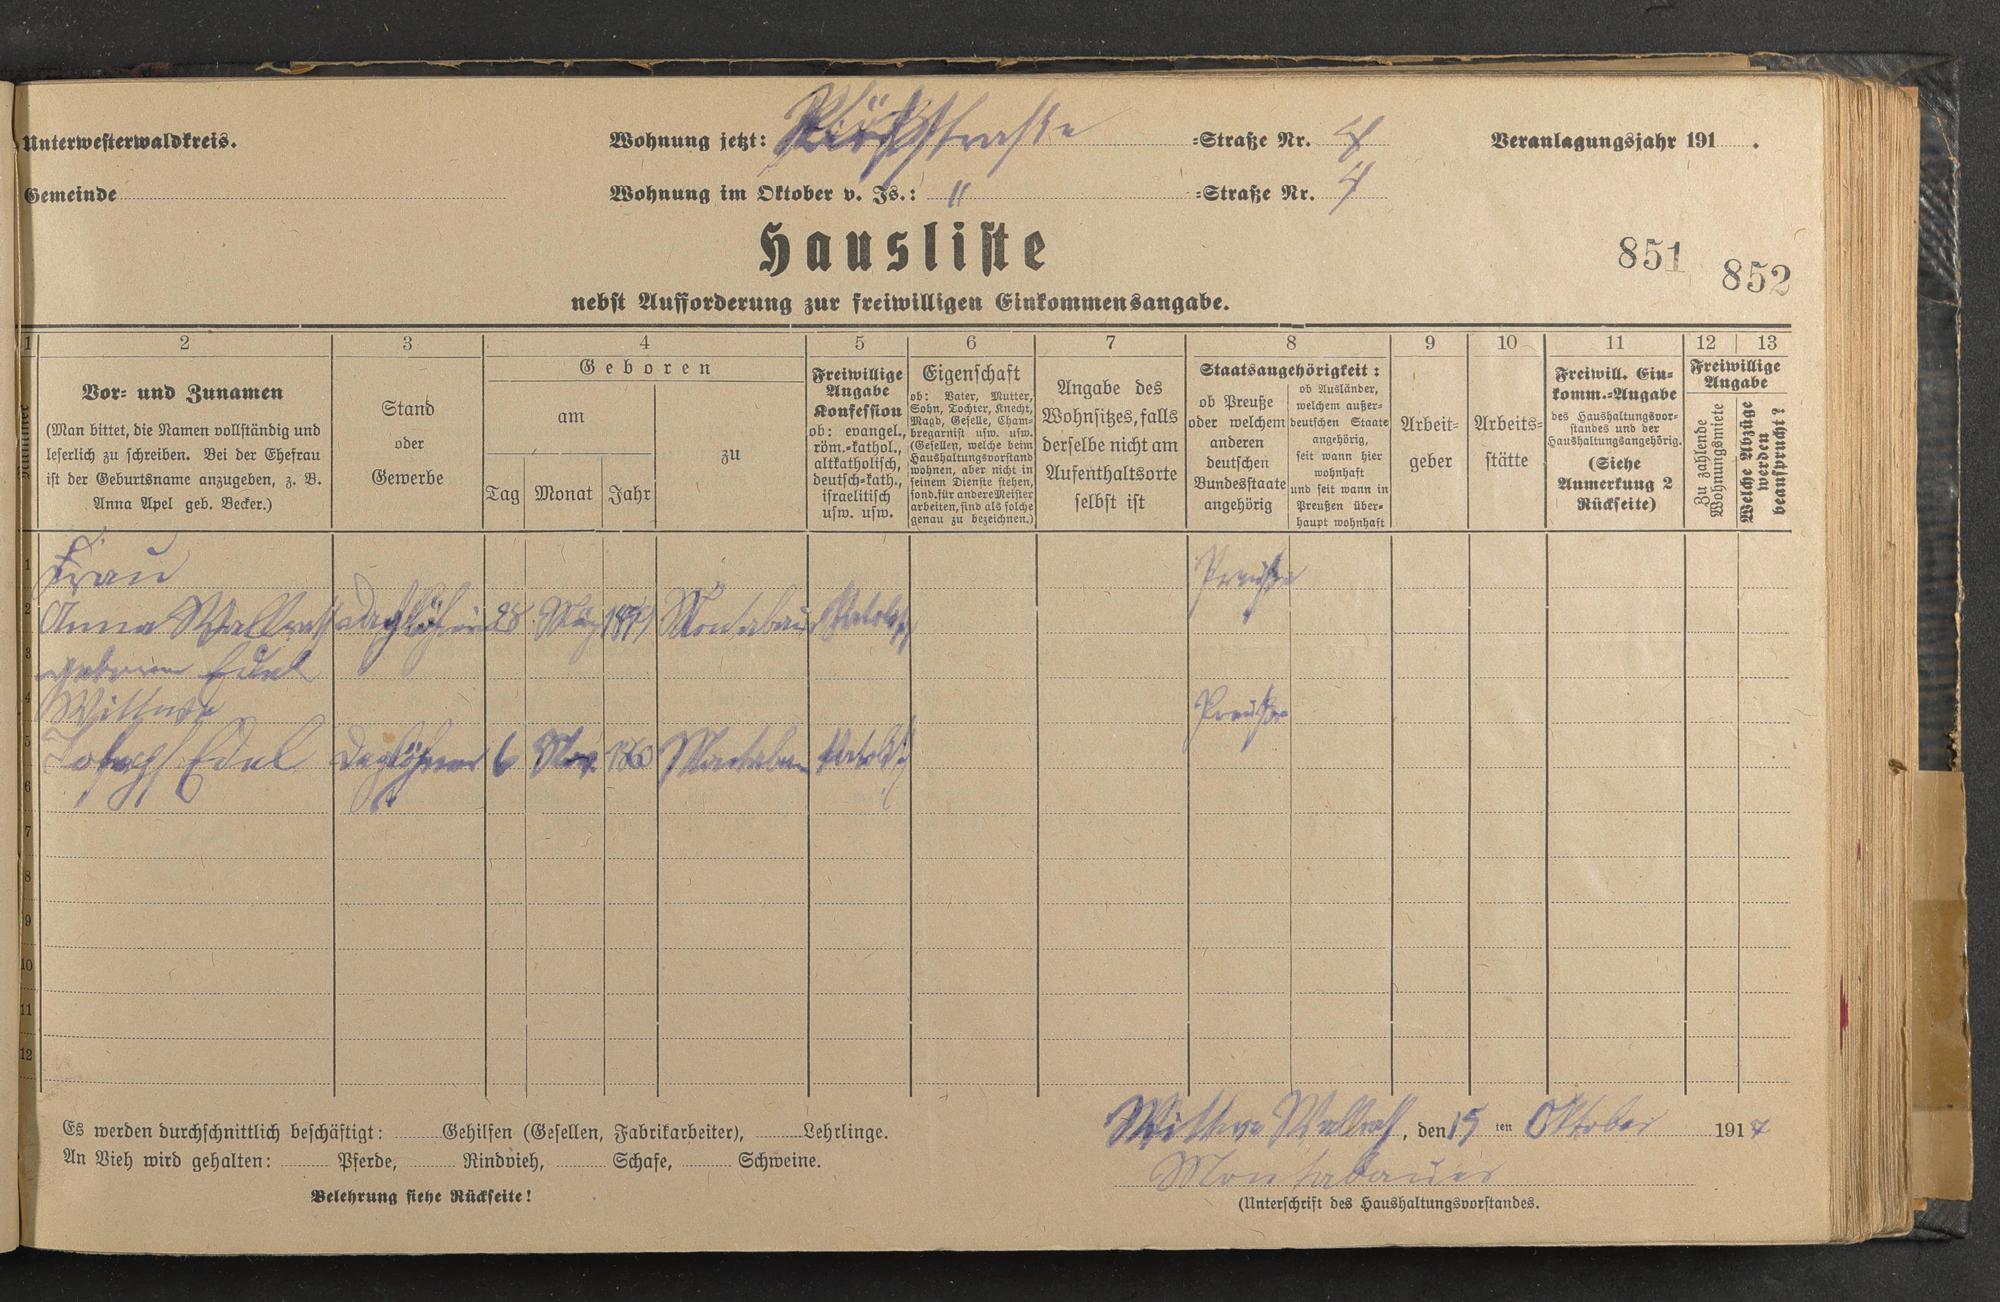 Unterwesterwaldkreis.
Wohnung jetzt: -Straße Nr. 8
Veranlagungsjahr 191 .
Gemeinde
Wohnung im Oktober v. Js.: " -Straße Nr. 4
Hausliste
851 852
nebst Aufforderung zur freiwilligen Einkommensangabe.
1 2 3 4 5 6 7 8 9 10 11 12 13
Nummer
Vor- und Zunamen
(Man bittet, die Namen vollständig und
leserlich zu schreiben. Bei der Ehefrau
ist der Geburtsname anzugeben, z. B.
Anna Apel geb. Becker.)
Stand
oder
Gewerbe
Geboren
am
Tag Monat Jahr
zu
Freiwillige
Angabe
Konfession
ob: evangel.,
röm.-kathol.,
altkatholisch,
deutsch-kath.,
israelitisch
usw. usw.
Eigenschaft
ob: Vater, Mutter,
Sohn, Tochter, Knecht,
Magd, Geselle, Cham-
bregarnist usw. usw.
(Gesellen, welche beim
Haushaltungsvorstand
wohnen, aber nicht in
seinem Dienste stehen,
sond. für andere Meister
arbeiten, sind als solche
genau zu bezeichnen.)
Angabe des
Wohnsitzes, falls
derselbe nicht am
Aufenthaltsorte
selbst ist
Staatsangehörigkeit:
ob Preuße
oder welchem
anderen
deutschen
Bundesstaate
angehörig
ob Ausländer,
welchem außer-
deutschen Staate
angehörig,
seit wann hier
wohnhaft
und seit wann in
Preußen über-
haupt wohnhaft
Arbeit-
geber
Arbeits-
stätte
Freiwill. Ein-
komm.-Angabe
des Haushaltungsvor-
standes und der
Haushaltungsangehörig.
(Siehe
Anmerkung 2
Rückseite)
Freiwillige
Angabe
Zu zahlende
Wohnungsmiete
Welche Abzüge
werden
beansprucht?
1 Frau Preuße
2 Anna Wallrath Montabaur
3 geborene Edel
4 Wittwe Preuße
5 Joseph Edel Daglöhner 6 Nov. Montabaur
6
7
8
9
10
11
12
Es werden durchschnittlich beschäftigt: Gehilfen (Gesellen, Fabrikarbeiter), Lehrlinge.
Wittwe Wallrath, den 15 ten Oktober 1917
An Vieh wird gehalten: Pferde, Rindvieh, Schafe, Schweine.
Montabauer
Belehrung siehe Rückseite!
(Unterschrift des Haushaltungsvorstandes.